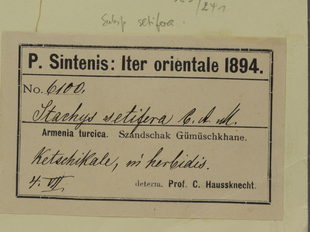 Subsp setifera.
P. Sintenis: Iter orientale 1894.
No. 6100.
Stachys setifera C. A. M.
Armenia turcica. Szandschak Gümüschkhane.
Ketschikale, in herbidis.
4. VII
determ. Prof. C. Haussknecht.